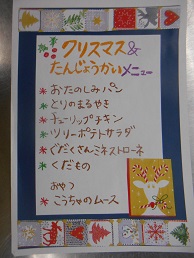 クリスマス&
たんじょうかいメニュー
おたのしみパン
とりのまるやき
チューリップチキン
ツリーポテトサラダ
ぐだくさんミネストローネ
くだもの
おやつ
こうちゃのムース